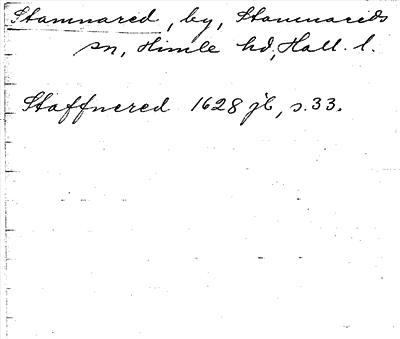 Stamnared, by, Stamnareds
sn, Himle hd, Hall. l.
Staffnered 1628 jb, s. 33.